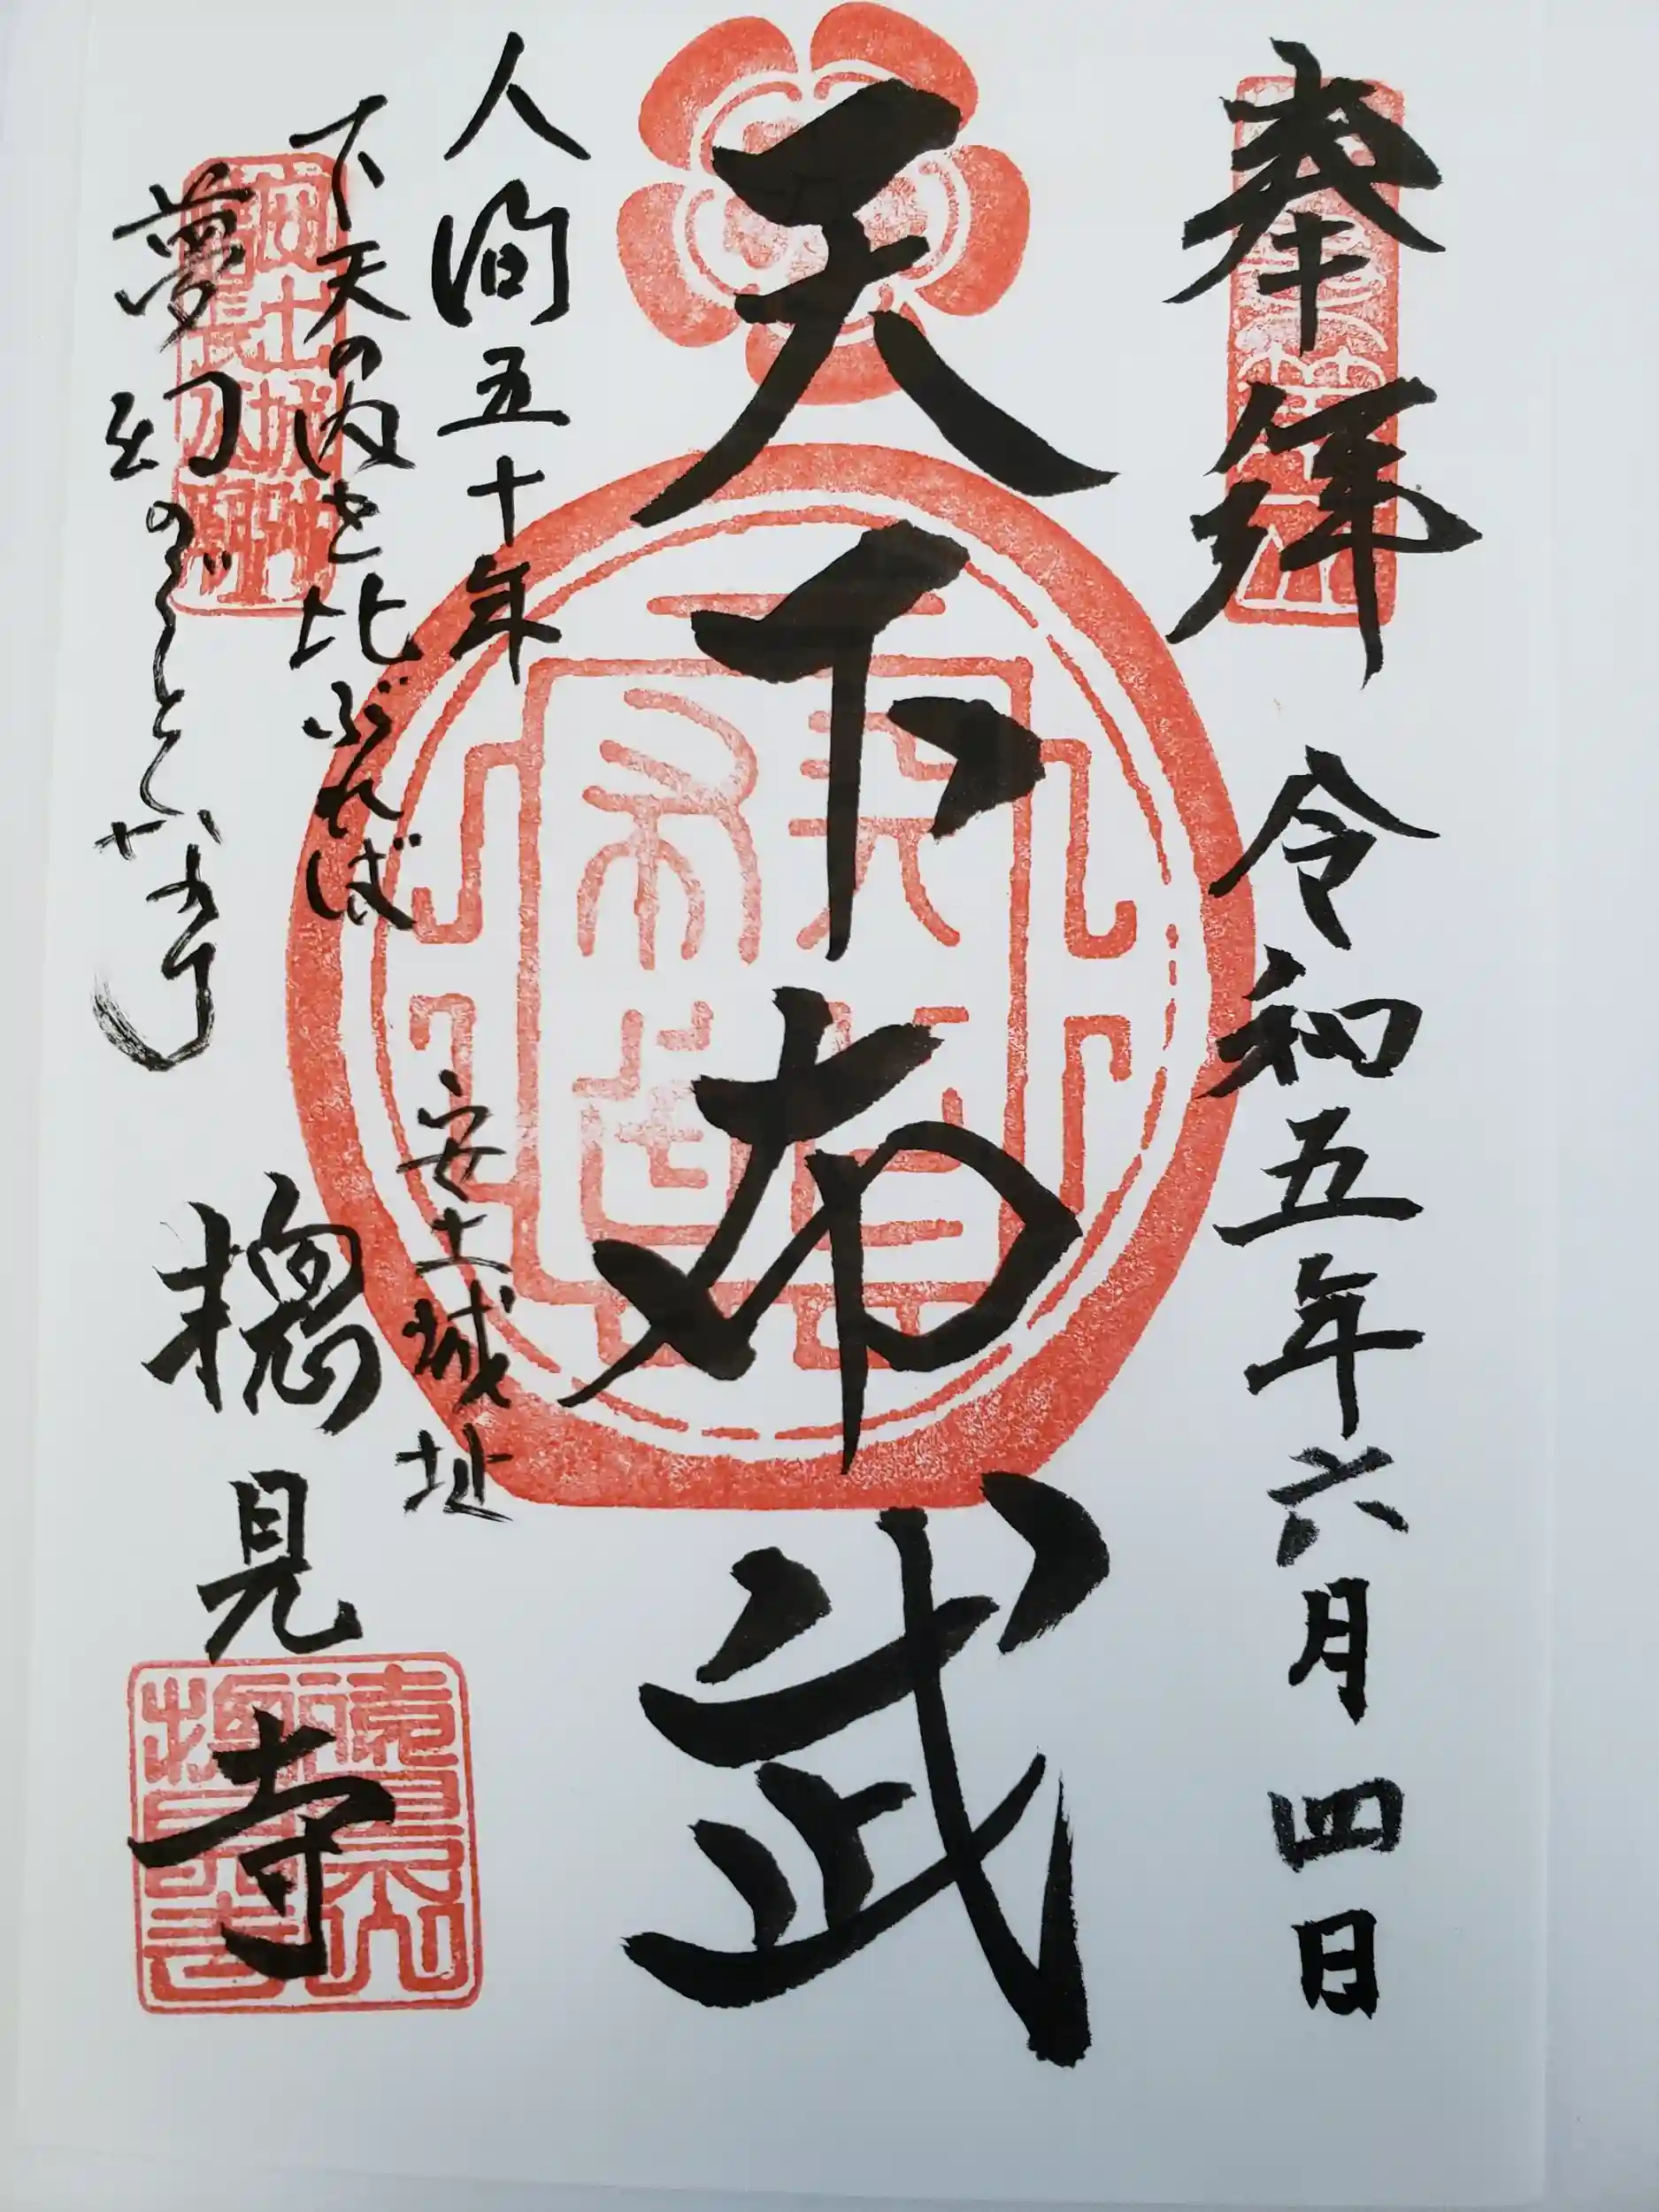 奉拝
令和五年六月四日
天下布武
人間五十年
下天の内を比ぶれば
夢幻のごとくなり
安土城址
摠見寺